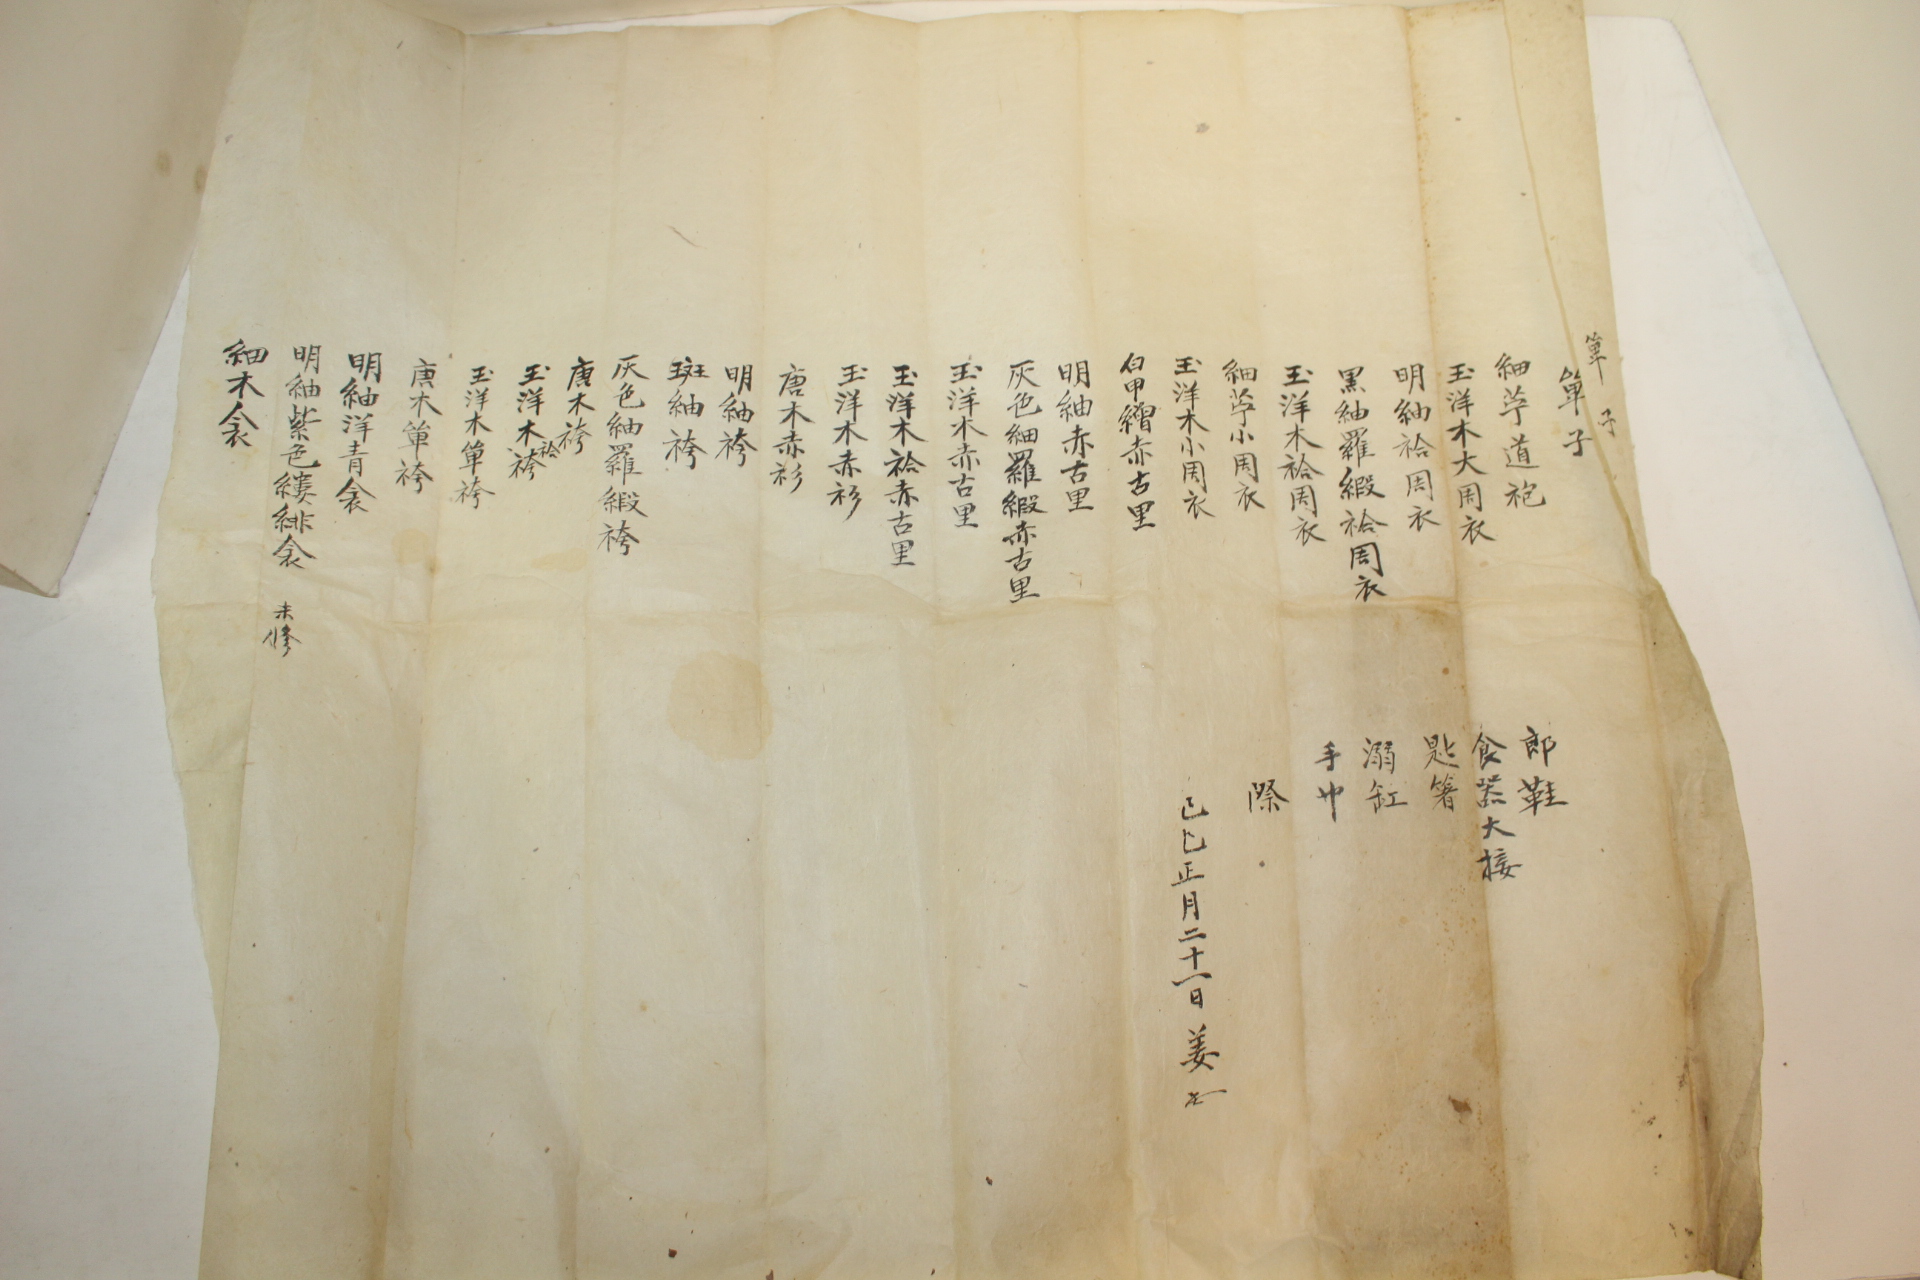 単子
単子
細苧道袍
玉洋木大周衣
明紬袷周衣
黑紬羅緞袷周衣
玉洋木袷周衣
細苧小周衣
玉洋木小周衣
白甲繒赤古里
明紬赤古里
灰色細羅緞赤古里
玉洋木赤古里
玉洋木袷赤古里
玉洋木赤衫
唐木赤衫
明紬袴
斑紬袴
灰色紬羅緞袴
唐木袴
玉洋木袷袴
玉洋木単袴
唐木単袴
明紬洋青衾
明紬紫色縷緋衾 未修
細木衾
郎鞋
食器大接
匙箸
溺缸
手巾
際
己巳正月二十一日 姜